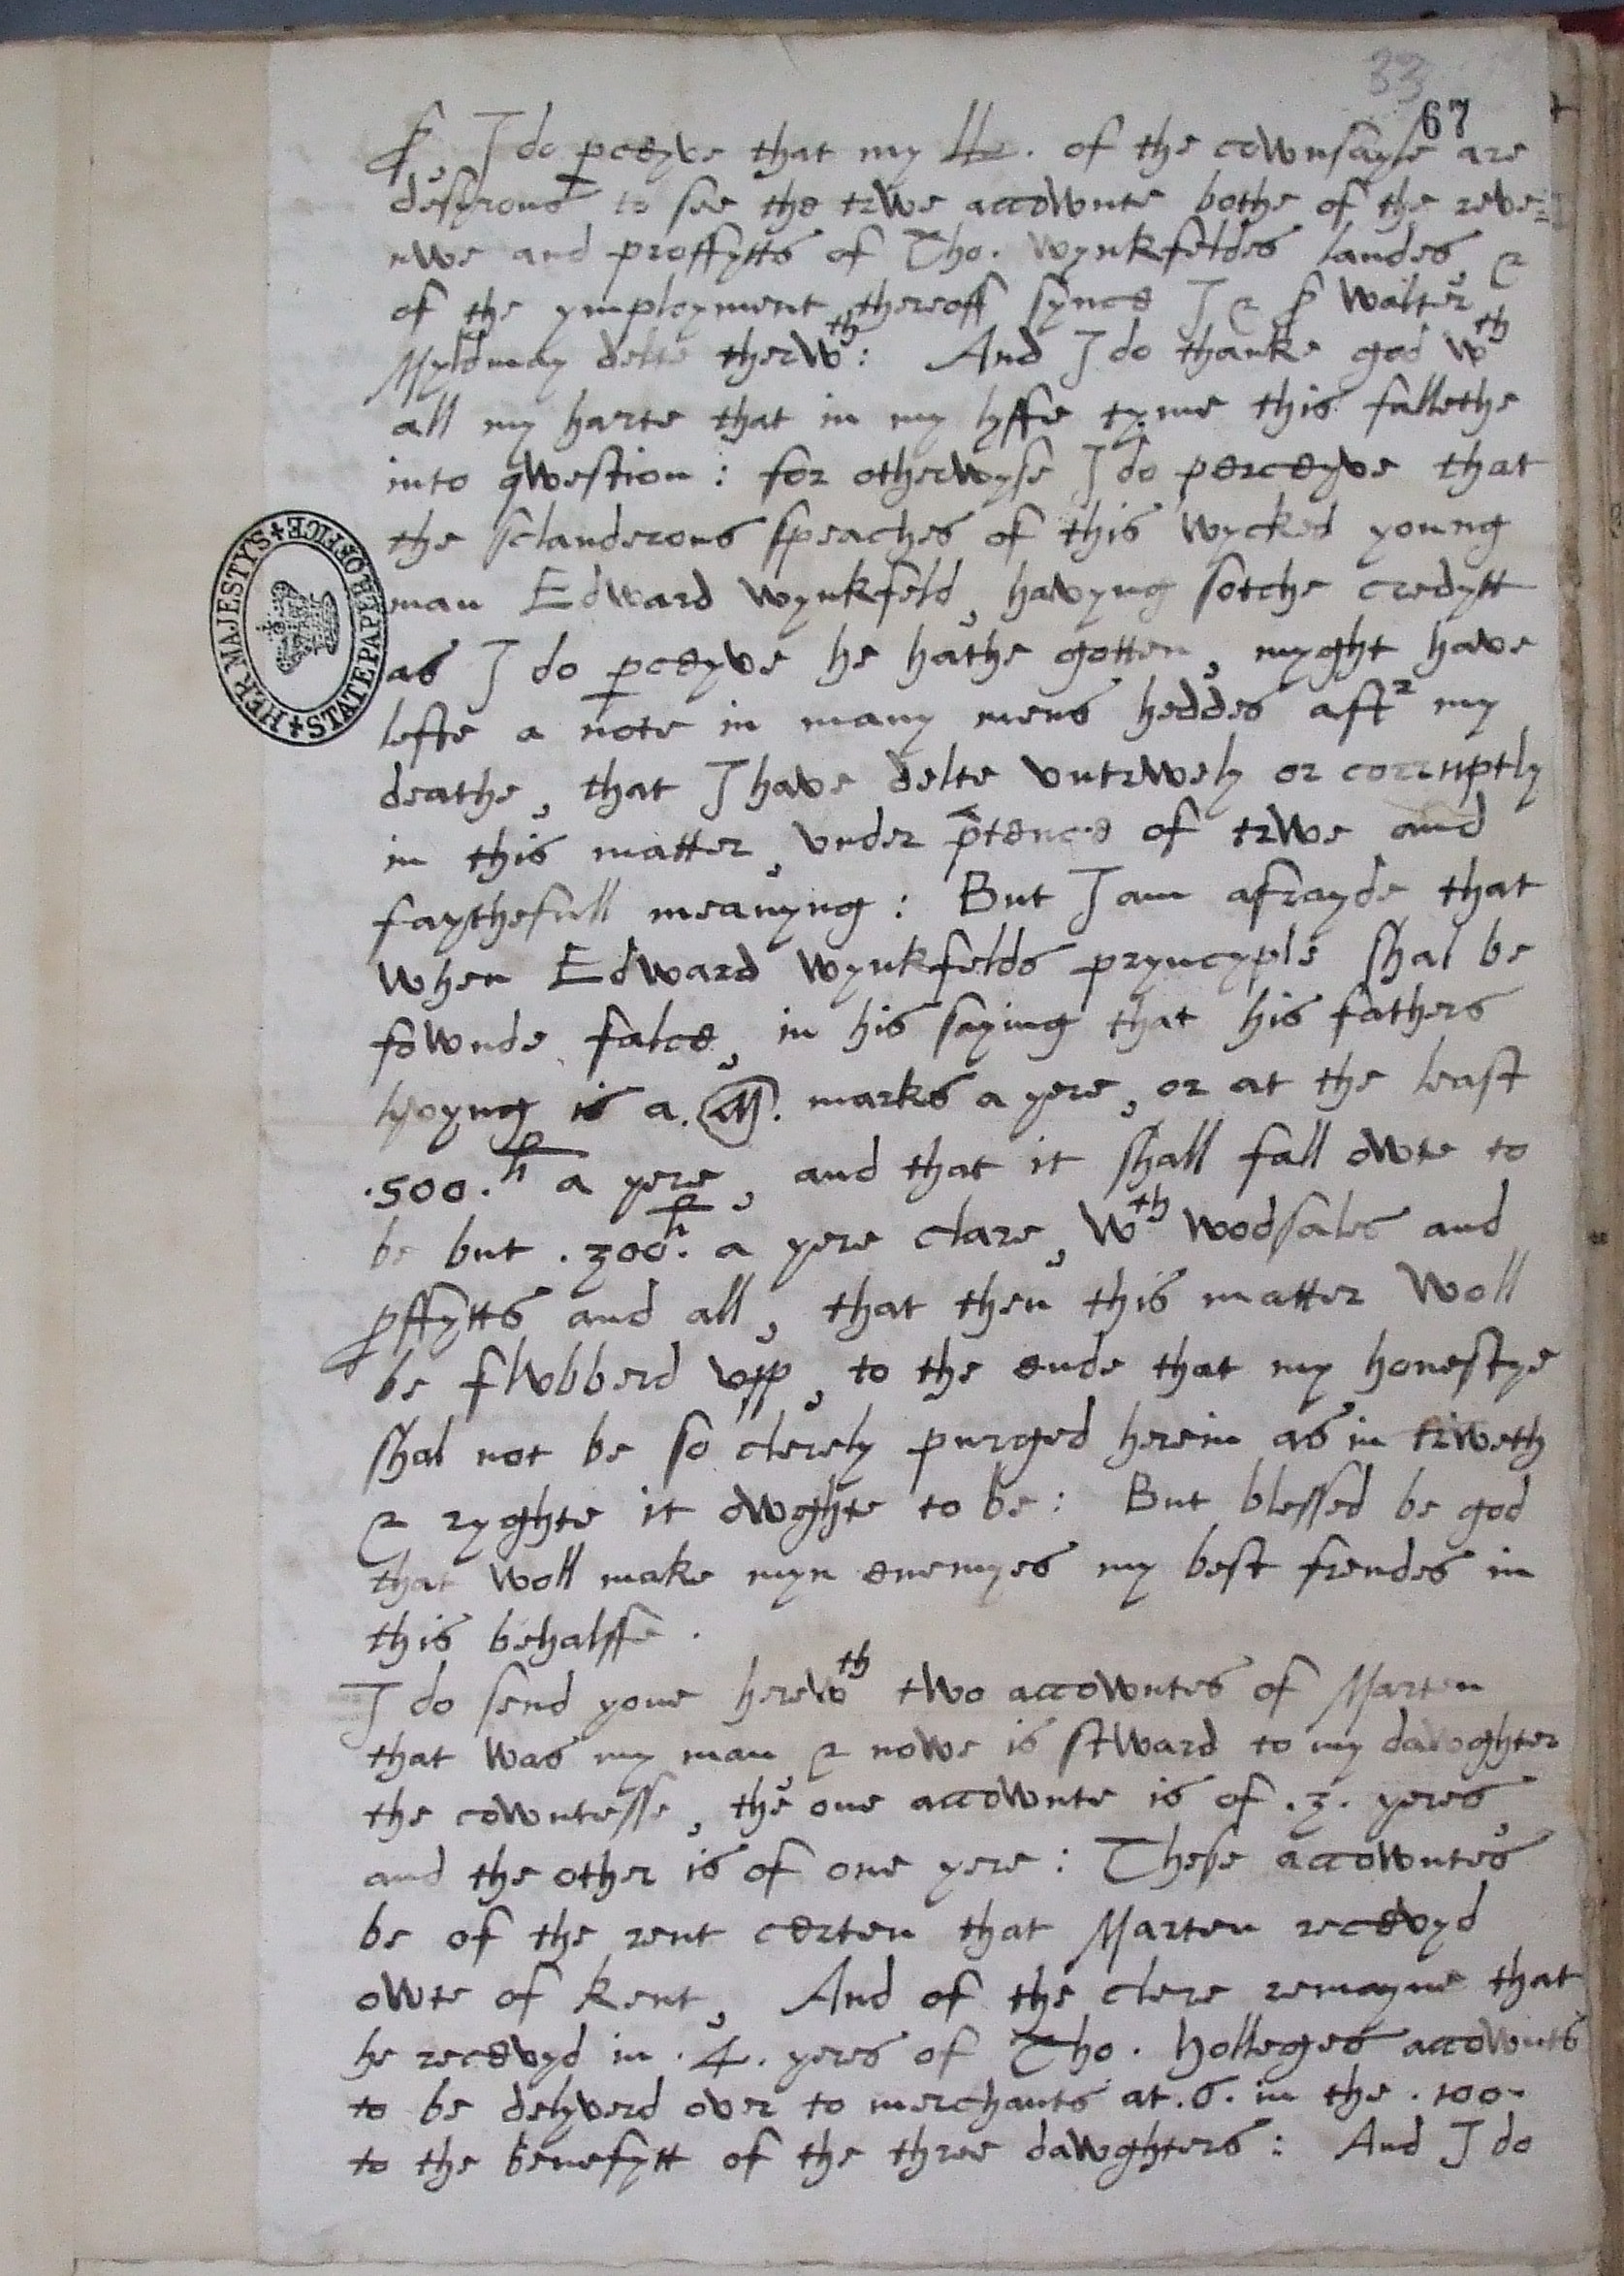 33
67
Sr, I do pceyve that my LLs. of the cownsayle are
desyrous to see the trwe accownte bothe of the reve=
nwe and proffytts of Tho. Wynkfeldes landes, &
of the ymployment thereoff synce I & Sr Walter
Myldmay delte therwth: And I do thanke god wth
all my harte that in my lyffe tyme this fallethe
into qwestion: for otherwyse I do perceyve that
the sclanderous speaches of this wycked young
man Edward Wynkfeld, havyng sotche credytt
as I do pceyve he hathe gotten, myght have
lefte a note in many mens heddes aftr my
deathe, that I have delte untrwely or corruptly
in this matter, under ptence of trwe and
faythefull meanyng: But I am afrayde that
when Edward Wynkfelds pryncyple shal be
fownde falce, in his saying that his fathers
lyvyng is a .M. marks a yere, or at the least
.500.li a yere, and that it shall fall owte to
be but .300.li a yere clare, wth wodsales and
pffytts and all, that then this matter woll
be slubberd upp, to the ende that my honestye
shal not be so clerely purged herein as in trweth
& ryghte it owghte to be: But blessed be god
that woll make myn enemyes my best frendes in
this behalffe.
I do send youe herewth two accowntes of Marten
that was my man & nowe is stward to my dawghter
the cowntesse, the one accownte is of .3. yeres,
and the other is of one yere: These accowntes
be of the rent certen that Marten recevyd
owte of Kent, And of the clere remayne that
he recevyd in .4. yeres of Tho. Holleges accownts
to be delyverd over to merchants at .6. in the .100.
to the benefytt of the three dawghters: And I do
HER MAJESTY'S STATE PAPER OFFICE